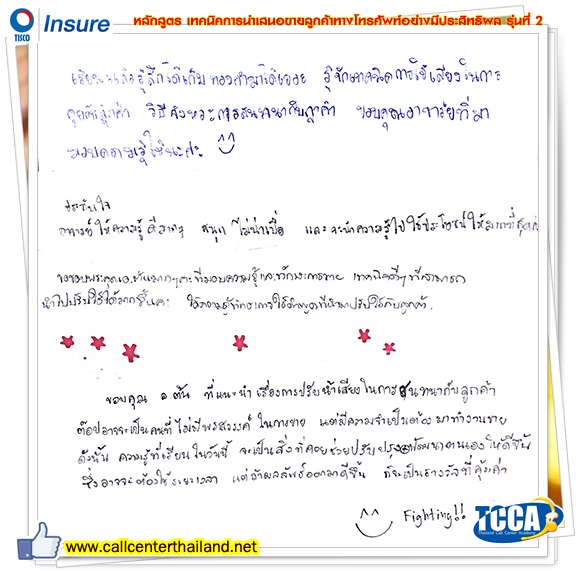 TISCO Insure หลักสูตร เทคนิคการนำเสนอขายลูกค้าทางโทรศัพท์อย่างมีประสิทธิผล รุ่นที่ 2
เรียนแล้วรู้สึกได้เก็บ ได้เยอะ รู้จักเทคนิคการใช้เสียงในการ
คุยกับลูกค้า วิธี จังหวะการสนทนากับลูกค้า ขอบคุณอาจารย์ที่มา
มอบความรู้ให้นะคะ
ประทับใจ
อาจารย์ให้ความรู้ดีมากๆ สนุก ไม่น่าเบื่อ และจะนำความรู้ไปใช้ประโยชน์ให้มากที่สุดค่ะ
ขอขอบพระคุณ มากๆค่ะที่มอบความรู้และทักษะการขาย เทคนิคดีๆที่สามารถ
นำไปปรับใช้ได้มากขึ้นค่ะ ได้ความรู้ทักษะการใช้ ที่นำมาปรับใช้กับลูกค้า.
ขอบคุณ อ.ตัน ที่แนะนำเรื่องการปรับน้ำเสียงในการสนทนากับลูกค้า
ต๊อปอาจจะเป็นคนที่ไม่มีพรสวรรค์ในการขาย แต่มีความจำเป็นต้องมาทำงานขาย
ดังนั้น ความรู้ที่เรียนในวันนี้ จะเป็นสิ่งที่คอยช่วยปรับปรุงพัฒนาตนเองให้ดีขึ้น
ซึ่งอาจจะต้องใช้ระยะเวลา แต่ถ้าผลลัพธ์ออกมาดีขึ้น ก็จะเป็นรางวัลที่คุ้มค่า
Fighting!!
TCCA
Thailand Call Center Academy
www.callcenterthailand.net